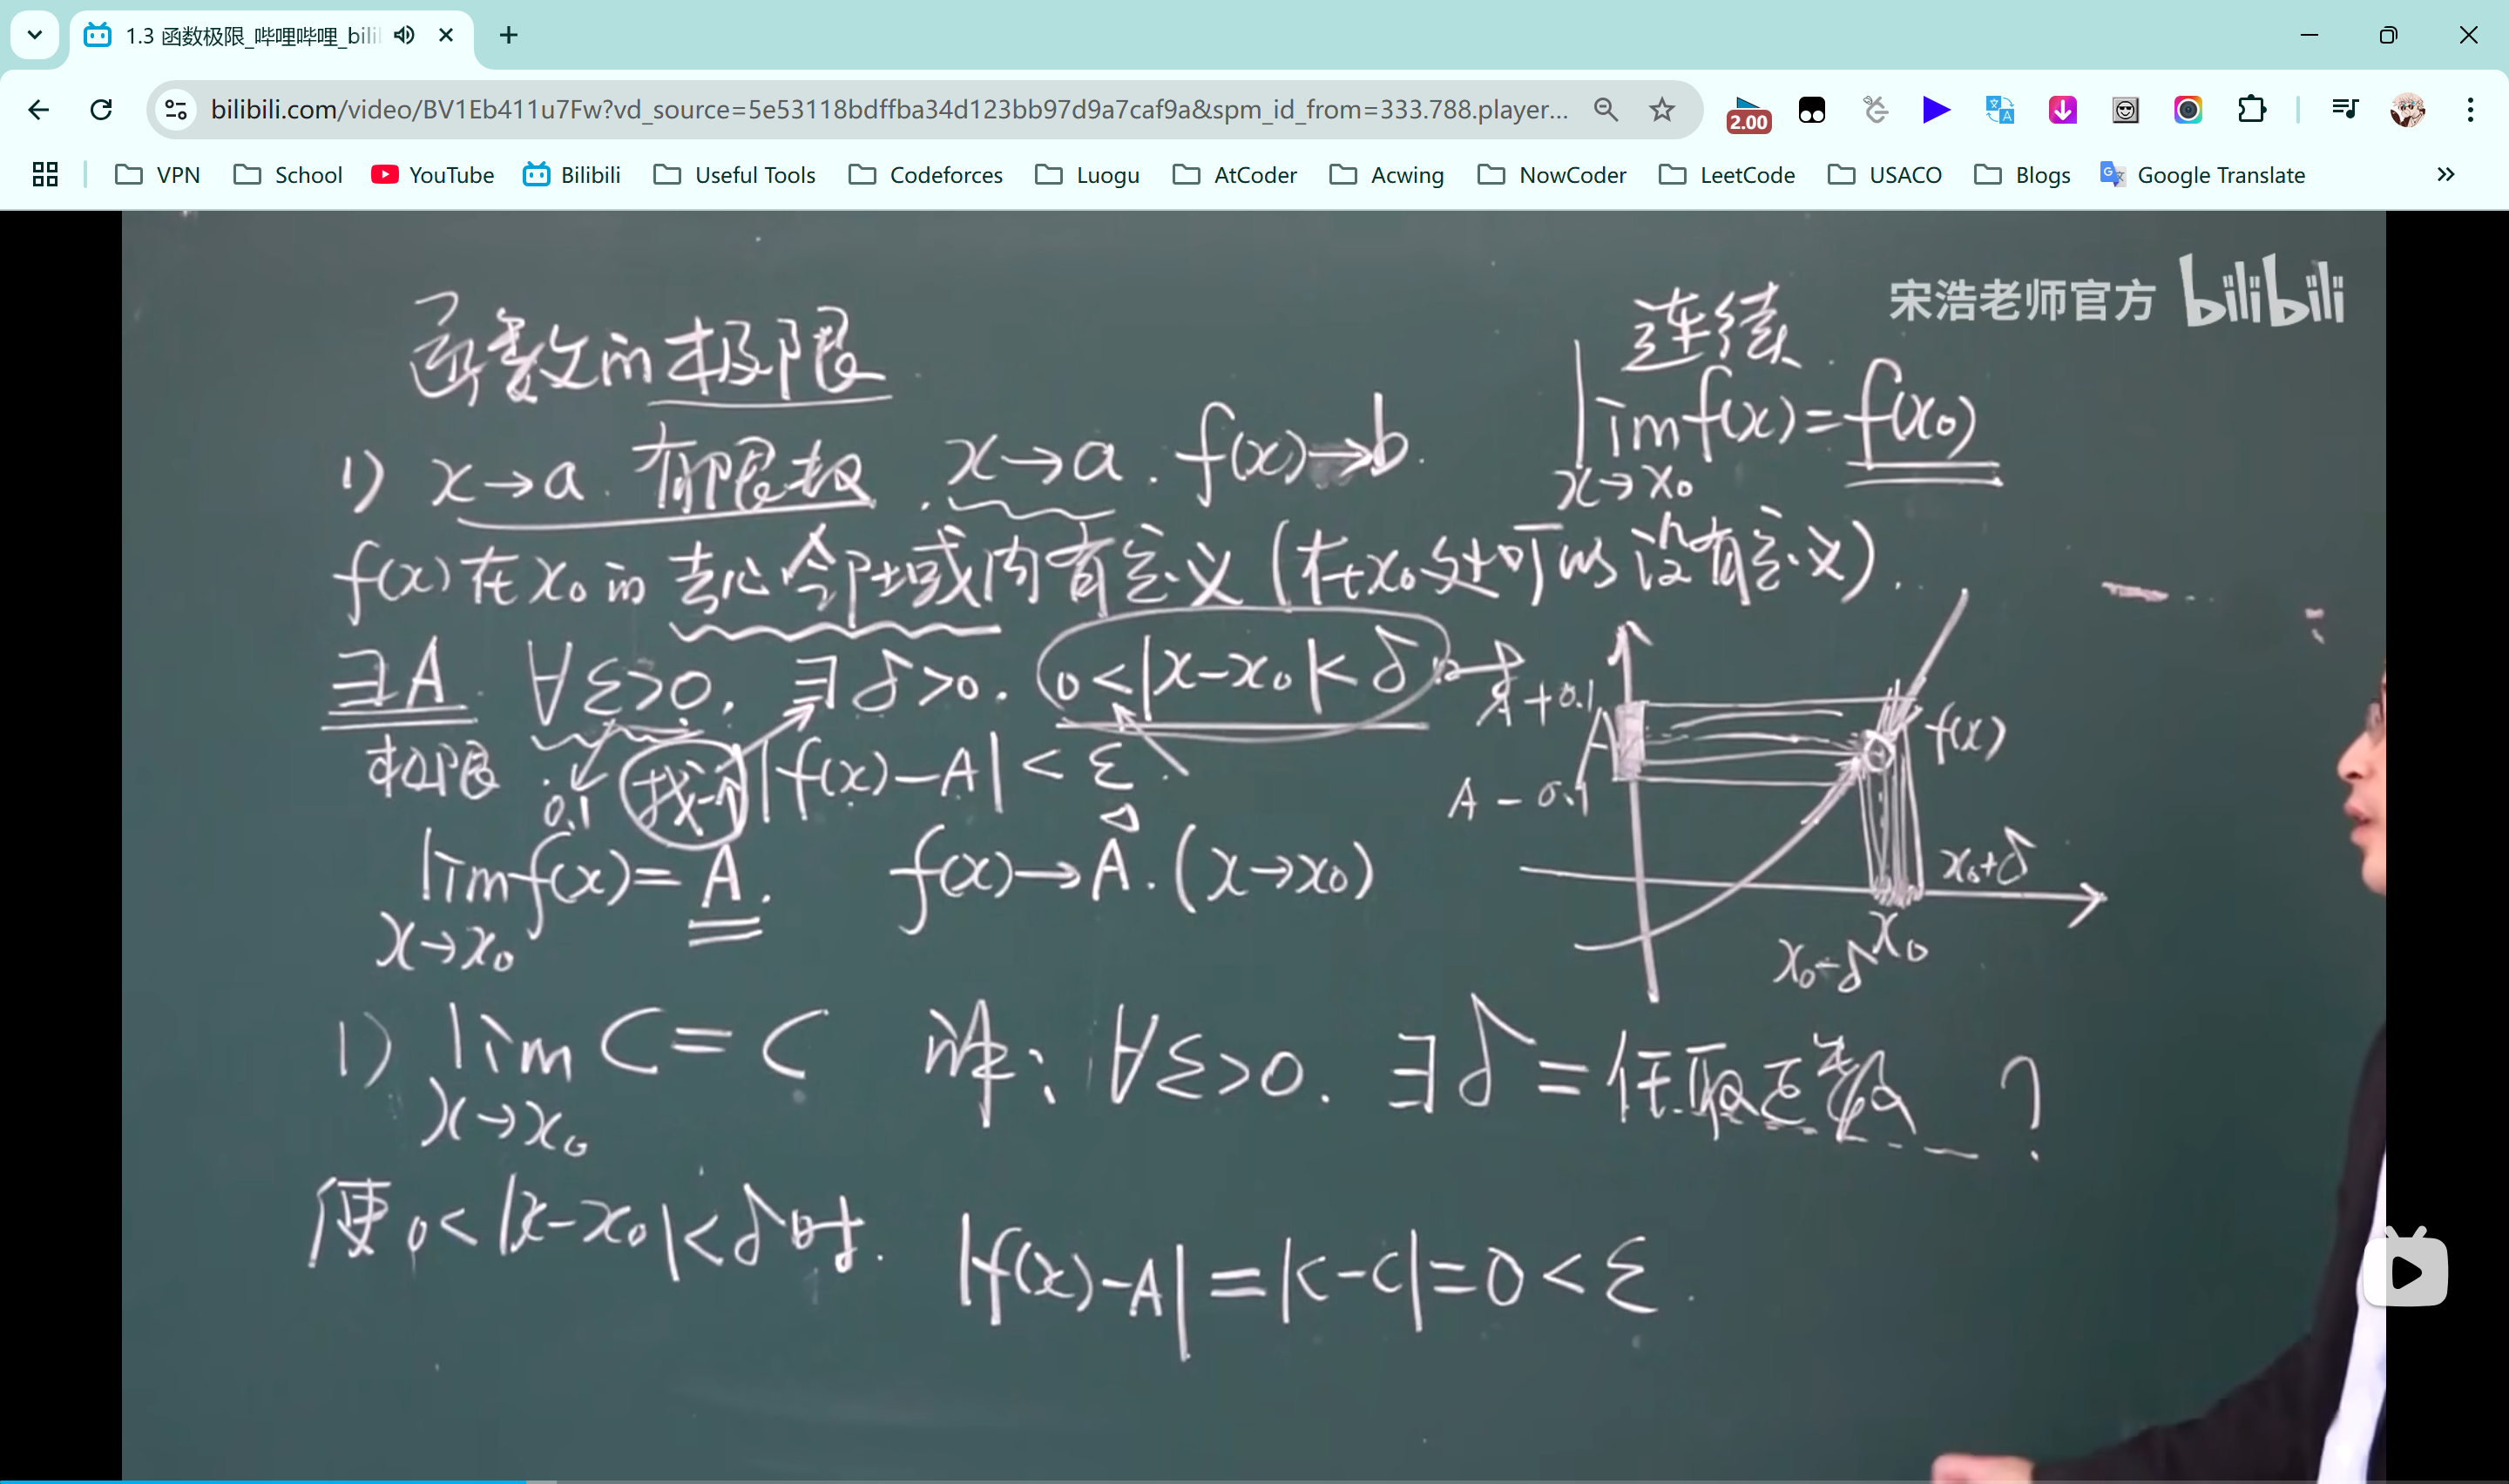 1.3 函数极限_哔哩哔哩_bili
bilibili.com/video/BV1Eb411u7Fw?vd_source=5e53118bdffba34d123bb97d9a7caf9a&spm_id_from=333.788.player...
2.00
VPN School YouTube Bilibili Useful Tools Codeforces Luogu AtCoder Acwing NowCoder LeetCode USACO Blogs Google Translate
宋浩老师官方 bilibili
函数的极限
连续
lim f(x)=f(x₀)
x→x₀
1) x→a. 有限数. x→a. f(x)→b.
f(x)在x₀的去心邻域内有定义(在x₀处可以没有定义).
∃A. ∀ε>0, ∃δ>0. 0<|x-x₀|<δ时
极限 0.1 找一个 |f(x)-A|<ε.
lim f(x)=A. f(x)→A.(x→x₀)
x→x₀
A+0.1
A
A-0.1
f(x)
x₀+δ
x₀-δ x₀
1) lim C=C 证: ∀ε>0. ∃δ=任取正数 ?
x→x₀
使0<|x-x₀|<δ时. |f(x)-A|=|C-C|=0<ε.